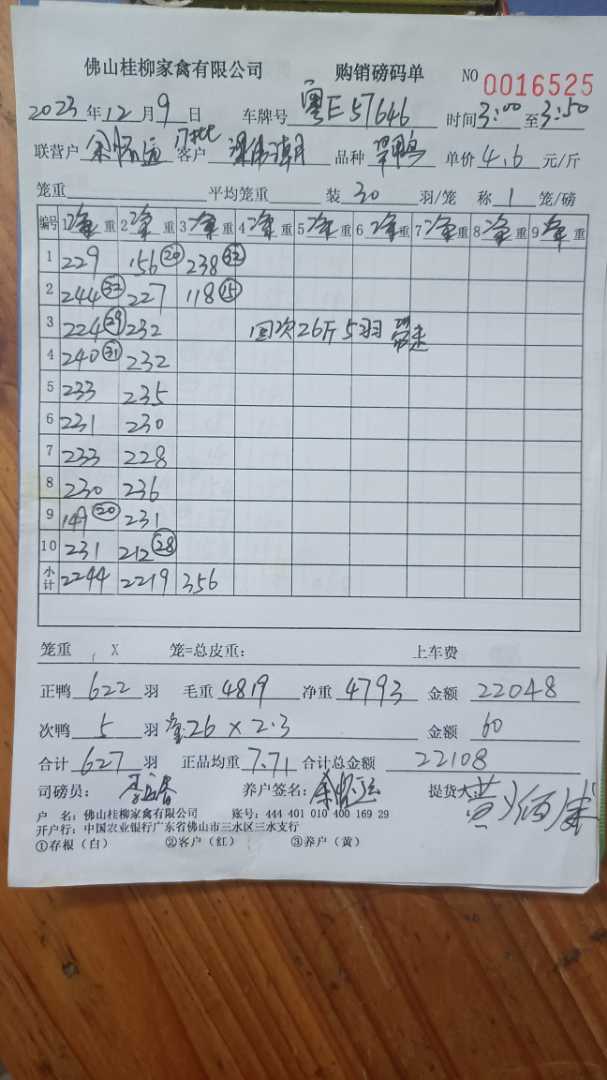 佛山桂柳家禽有限公司 购销磅码单 NO 0016525
2023年12月9日 车牌号 粤E57646 时间3:00至3:50
联营户 客户 品种 单价4.6元/斤
笼重 平均笼重 装30羽/笼 称1笼/磅
编号 1净重重 2净重重 3净重重 4净重重 5净重重 6净重重 7净重重 8净重重 9净重重
1 229 156⑳ 238㉜
2 244㉜ 227 118⑮
3 224㉙ 232 回次26斤5羽
4 240㉛ 232
5 233 235
6 231 230
7 233 228
8 230 236
9 149⑳ 231
10 231 212㉘
小计 2244 2219 356
笼重 X 笼=总皮重: 上车费
正鸭622羽 毛重4819 净重4793 金额22048
次鸭5羽 26×2.3 金额60
合计627羽 正品均重7.71 合计总金额22108
司磅员: 养户签名: 提货人
户 名:佛山桂柳家禽有限公司 账号:444 401 010 400 169 29
开户行:中国农业银行广东省佛山市三水区三水支行
①存根(白) ②客户(红) ③养户(黄)